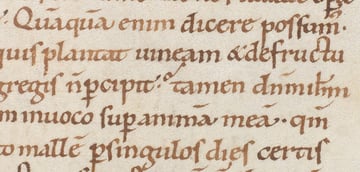 . Quāquā enim dicere possum̄.
quis plantat uineam & de fructu
gregis ꞃ̄ pcipit. tamen
m inuoco sup animā meā. qm̄
to mallē ꝑ singulos dies certis